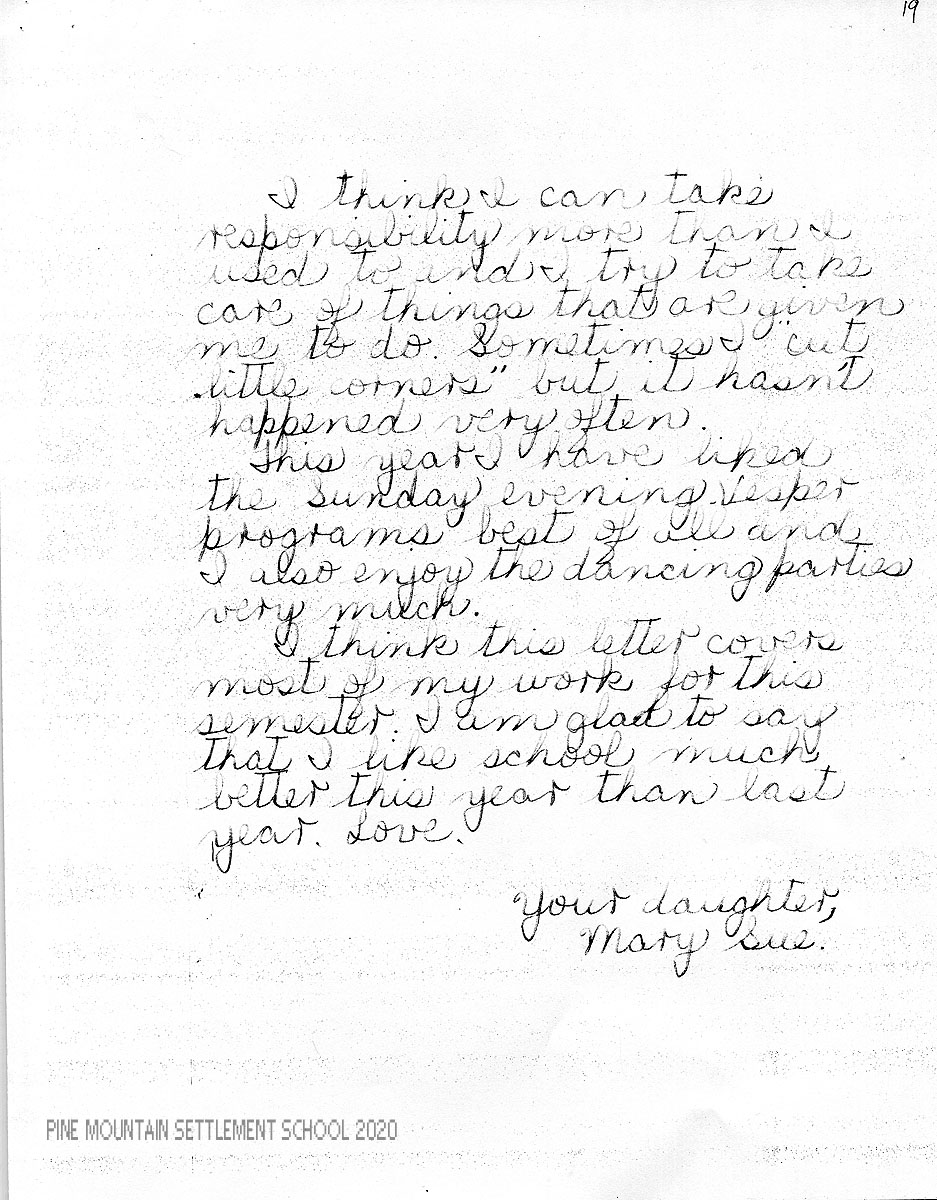 19
I think I can take
responsibility more than I
used to and I try to take
care of things that are given
me to do. Sometimes I "cut
little corners" but it hasn't
happened very often.
This year I have liked
the Sunday evening Vesper
programs best of all and
I also enjoy the dancing parties
very much.
I think this letter covers
most of my work for this
semester. I am glad to say
that I like school much
better this year than last
year. Love.
Your daughter,
Mary Sue.
PINE MOUNTAIN SETTLEMENT SCHOOL 2020